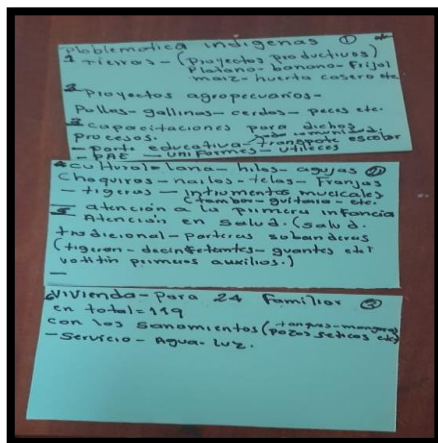 problematica indigenas ①
1 tierras - (proyectos productivos)
Platano - banano - Frijol
maiz - huerta casera etc
2 proyectos agropecuarios -
Pollos - gallinas - cerdos - peces etc.
3 capacitaciones para dichos
procesos. comunidad.
- parte educativa - transporte escolar
- PAE - uniformes - utileces
4 cultural - lana - hilos - agujas ②
chaquiras - nailos - telas - Franjas
- tigeras - intrumentos musicales
(tambor - guitarra - etc.
5 - atención a la primera infancia
Atencion en salud. (salud.
tradicional - parteras sobanderas
(tigeras - decinfetantes - guantes etc
votitin primeros auxilios.)
vivienda - para 24 Familias ③
en total = 119
con los sanamientos (tanques - mangueras
pozos seticos etc)
- Servicio - Agua - luz.